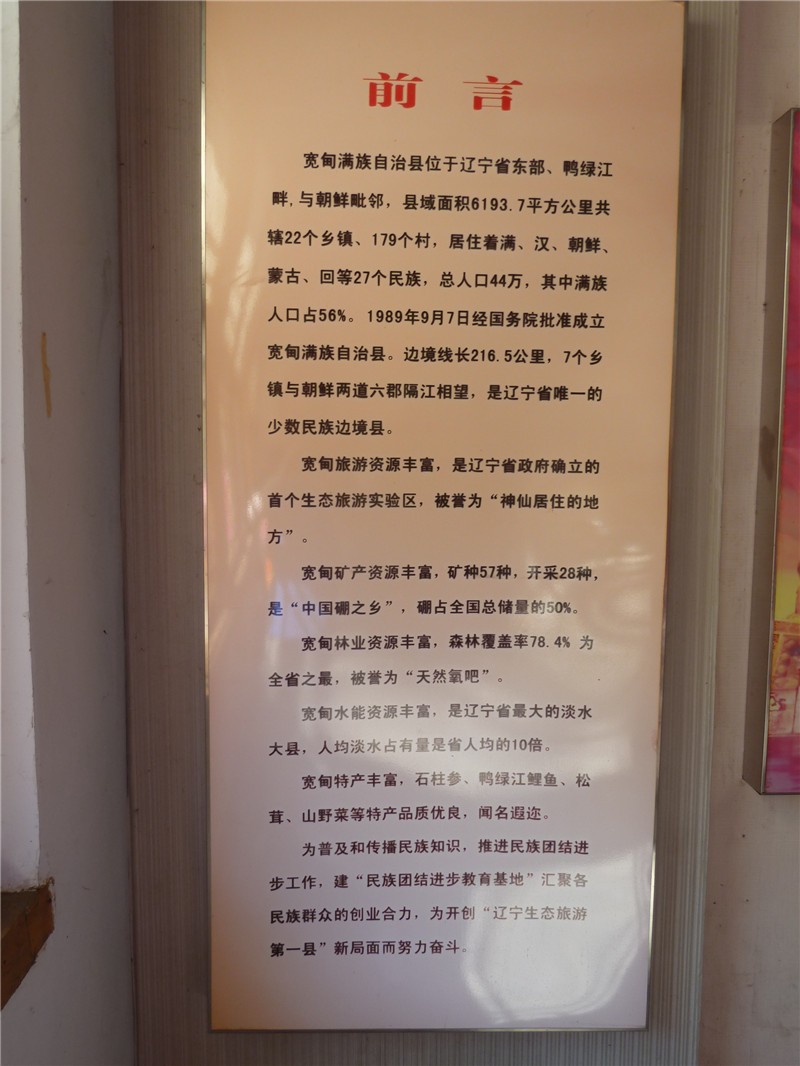 前言
宽甸满族自治县位于辽宁省东部、鸭绿江
畔,与朝鲜毗邻，县域面积6193.7平方公里共
辖22个乡镇、179个村，居住着满、汉、朝鲜、
蒙古、回等27个民族，总人口44万，其中满族
人口占56%。1989年9月7日经国务院批准成立
宽甸满族自治县。边境线长216.5公里，7个乡
镇与朝鲜两道六郡隔江相望，是辽宁省唯一的
少数民族边境县。
宽甸旅游资源丰富，是辽宁省政府确立的
首个生态旅游实验区，被誉为“神仙居住的地
方”。
宽甸矿产资源丰富，矿种57种，开采28种，
是“中国硼之乡”，硼占全国总储量的50%。
宽甸林业资源丰富，森林覆盖率78.4% 为
全省之最，被誉为“天然氧吧”。
宽甸水能资源丰富，是辽宁省最大的淡水
大县，人均淡水占有量是省人均的10倍。
宽甸特产丰富，石柱参、鸭绿江鲤鱼、松
茸、山野菜等特产品质优良，闻名遐迩。
为普及和传播民族知识，推进民族团结进
步工作，建“民族团结进步教育基地”汇聚各
民族群众的创业合力，为开创“辽宁生态旅游
第一县”新局面而努力奋斗。